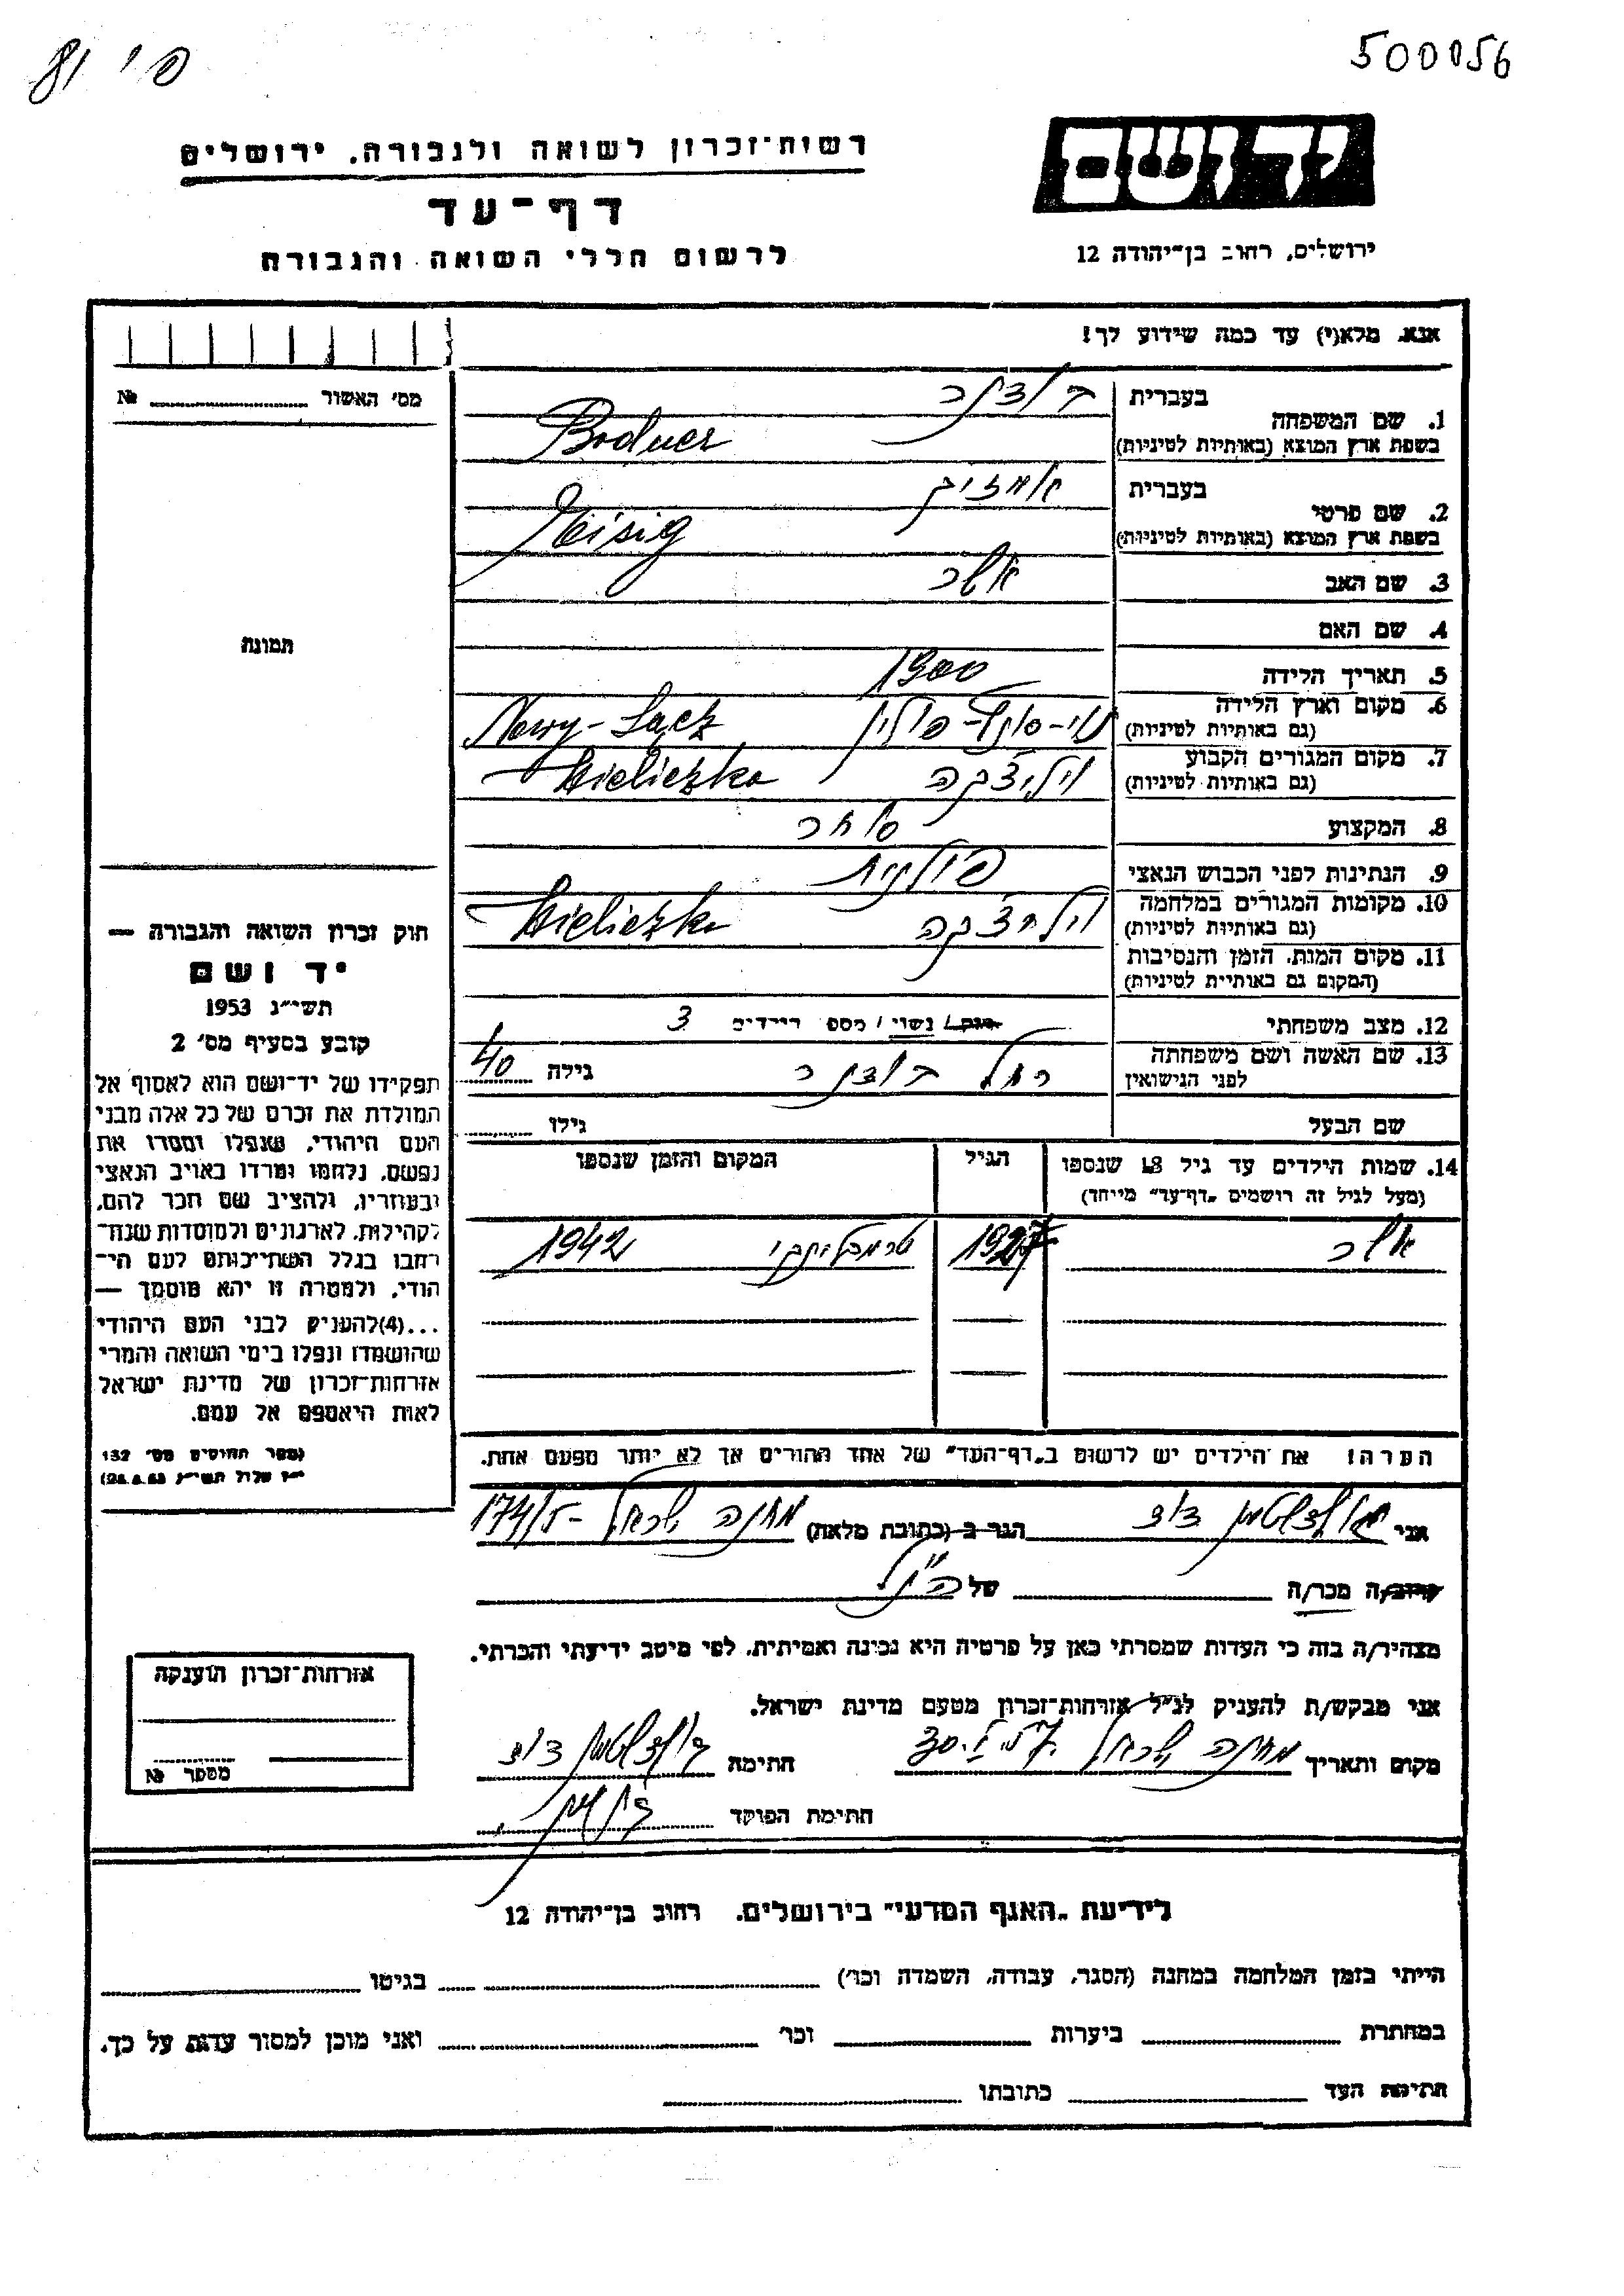 500056
פ' 81
יד ושם
רשות־זכרון לשואה ולגבורה, ירושלים
דף־עד
לרשום חללי השואה והגבורה
ירושלים, רחוב בן־יהודה 12
אנא, מלא(י) עד כמה שידוע לך!
מס' האשור № 
1. שם המשפחה בעברית בודנר
בשפת ארץ המוצא (באותיות לטיניות) Bodner
2. שם פרטי בעברית
בשפת ארץ המוצא (באותיות לטיניות) Heisig
3. שם האב אשר
4. שם האם
5. תאריך הלידה 1900
6. מקום וארץ הלידה (גם באותיות לטיניות) נוי-סונץ-פולין Nowy-Sącz
7. מקום המגורים הקבוע (גם באותיות לטיניות) ויליצ'קה Wieliczka
8. המקצוע סוחר
9. הנתינות לפני הכבוש הנאצי פולנית
10. מקומות המגורים במלחמה (גם באותיות לטיניות) ויליצ'קה Wieliczka
11. מקום המות, הזמן והנסיבות (המקום גם באותיית לטיניות)
12. מצב משפחתי רווק / נשוי / מספר הילדים 3
13. שם האשה ושם משפחתה לפני הנישואין רחל בודנר גילה 40
שם הבעל גילו
14. שמות הילדים עד גיל 18 שנספו (מעל לגיל זה רושמים "דף־עד" מייחד) הגיל המקום והזמן שנספו
אשר 1927 1942
הערה! את הילדים יש לרשום ב"דף־העד" של אחד ההורים אך לא יותר מפעם אחת.
תמונה
חוק זכרון השואה והגבורה —
יד ושם
תשי"ג 1953
קובע בסעיף מס' 2
תפקידו של יד־ושם הוא לאסוף אל
המולדת את זכרם של כל אלה מבני
העם היהודי, שנפלו ומסרו את
נפשם, נלחמו ומרדו באויב הנאצי
ובעוזריו, ולהציב שם וזכר להם,
לקהילות, לארגונים ולמוסדות שנח־
רבו בגלל השתייכותם לעם הי־
הודי, ולמטרה זו יהא מוסמך —
...(4)להעניק לבני העם היהודי
שהושמדו ונפלו בימי השואה והמרי
אזרחות־זכרון של מדינת ישראל
לאות היאספם אל עמם.
(ספר החוקים מס' 132
י"ז אלול תשי"ג 28.8.53)
אני דוד הגר ב (כתובת מלאה) מחנה ישראל - 174/5
קרוב/ה מכר/ה של הנ"ל
מצהיר/ה בזה כי העדות שמסרתי כאן על פרטיה היא נכונה ואמיתית, לפי מיטב ידיעתי והכרתי.
אני מבקש/ת להעניק לנ"ל אזרחות־זכרון מטעם מדינת ישראל.
מקום ותאריך מחנה ישראל חתימה דוד
חתימת הפוקד
אזרחות־זכרון הוענקה
מספר №
לידיעת "האגף המדעי" בירושלים, רחוב בן־יהודה 12
הייתי בזמן המלחמה במחנה (הסגר, עבודה, השמדה וכו') בגיטו
במחתרת ביערות וכו' ואני מוכן למסור עדות על כך.
חתימת העד כתובתו